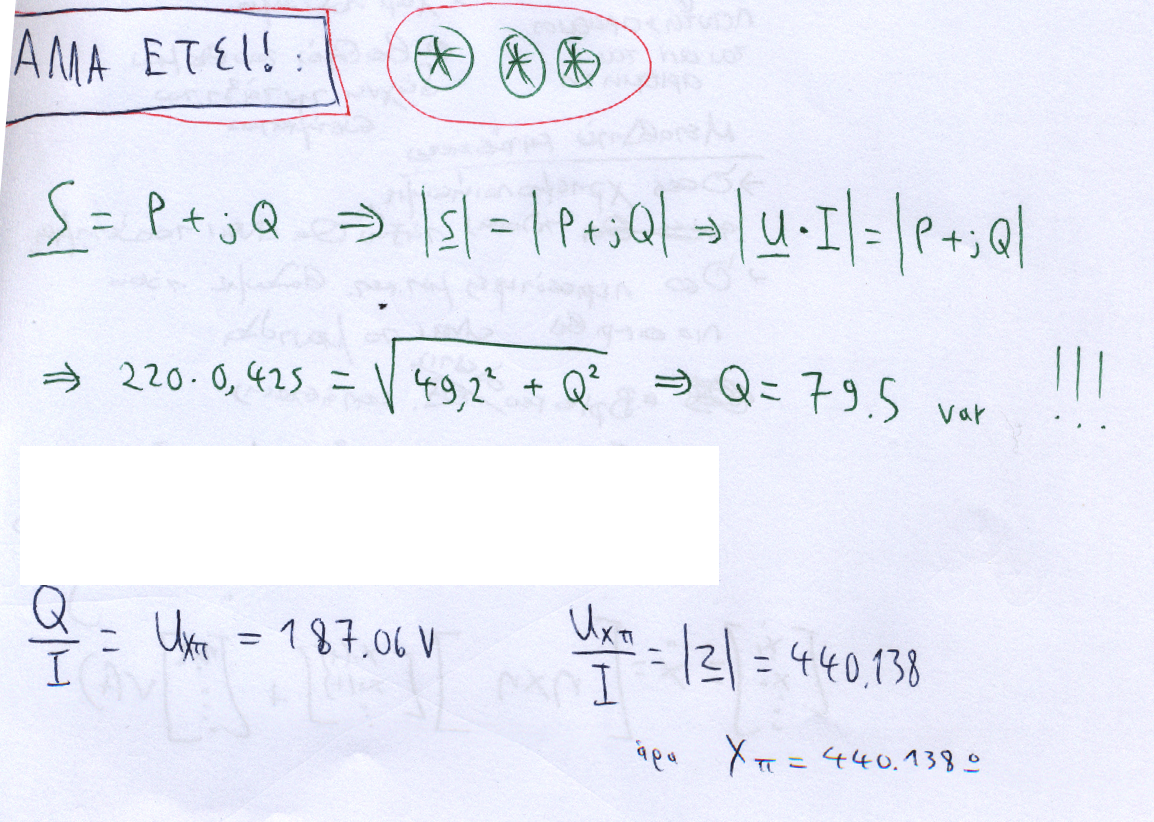 ΑΜΑ ΕΤΣΙ!:
* * *
S = P + jQ ⇒ |S| = |P+jQ| ⇒ |U·I| = |P+jQ|
⇒ 220·0,425 = √(49,2² + Q²) ⇒ Q = 79.5 var !!!
Q/I = Uxπ = 187.06 V
Uxπ/I = |Z| = 440.138
άρα Xπ = 440.138 Ω